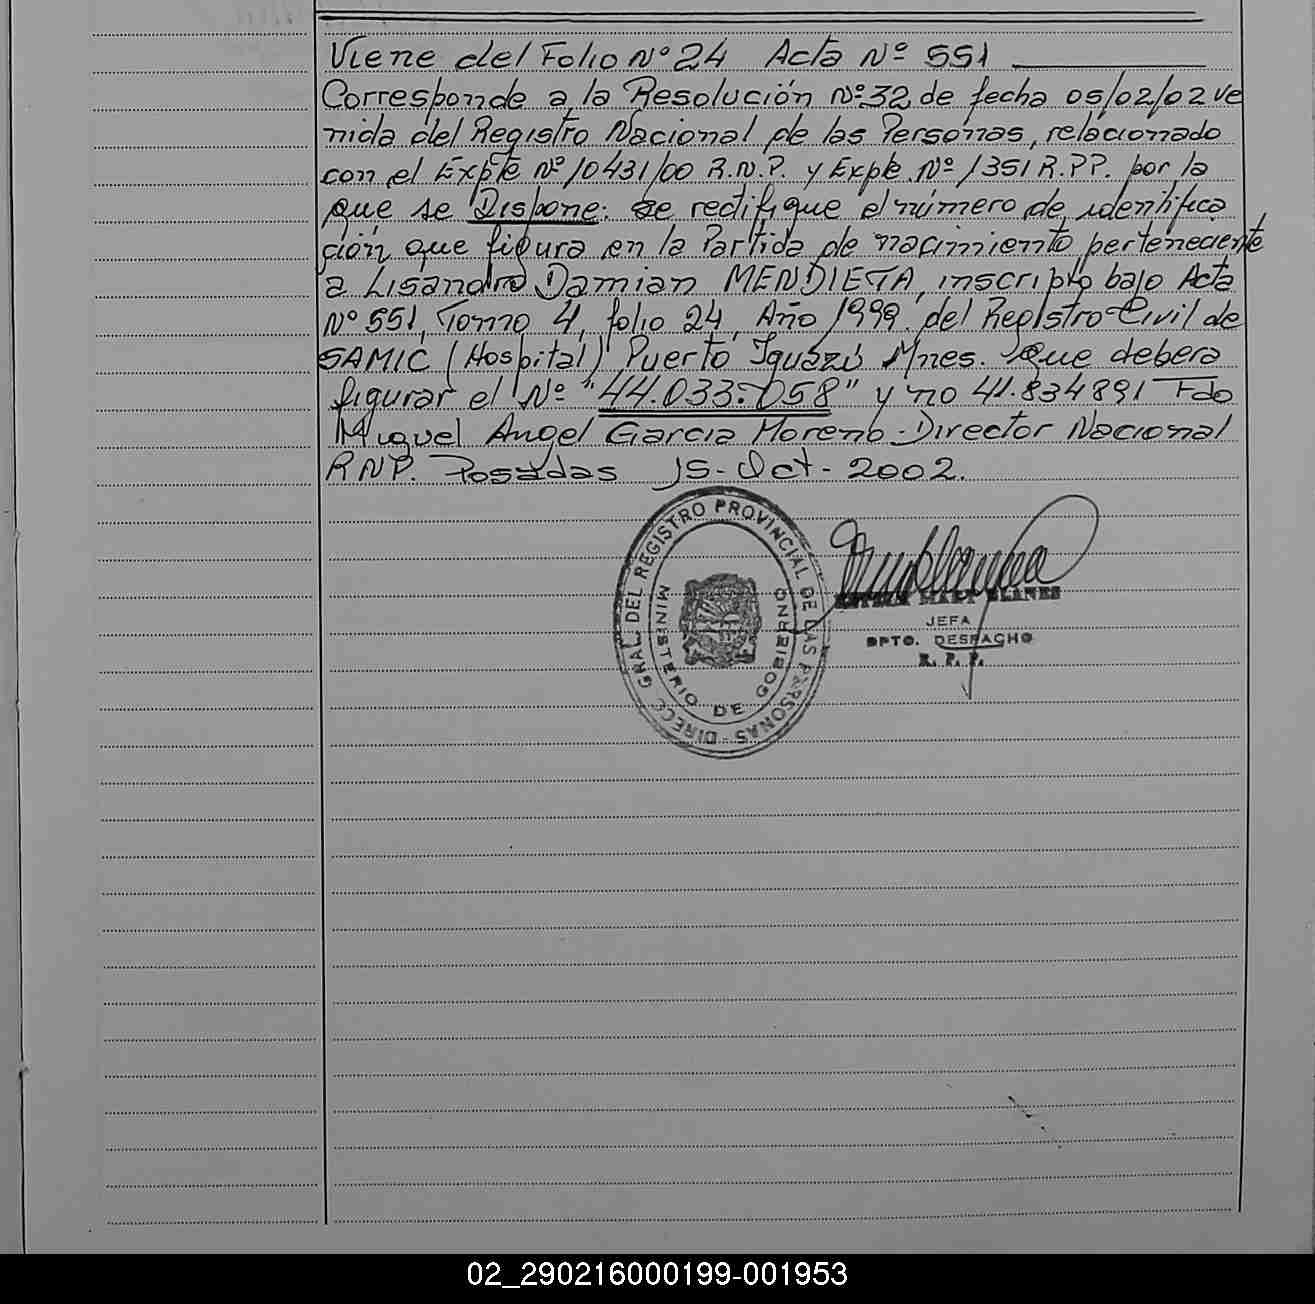 Viene del Folio Nº 24 Acta Nº 551
Corresponde a la Resolución Nº 32 de fecha 05/02/02 ve
nida del Registro Nacional de las Personas, relacionado
con el Expte Nº 10431/00 R.N.P. y Expte. Nº 1351 R.PP. por la
que se Dispone: se rectifique el número de identifica
ción que figura en la Partida de nacimiento perteneciente
a Lisandro Damian MENDIETA, inscripto bajo Acta
Nº 551, Tomo 4, folio 24, Año 1999. del Registro Civil de
SAMIC (Hospital) Puerto Iguazú Mnes. Que debera
figurar el Nº "44.033.058" y no 41.834891 Fdo
Miguel Angel Garcia Moreno - Director Nacional
RNP. Posadas 15-Oct-2002.
DIRECC GRAL DEL REGISTRO PROVINCIAL DE LAS PERSONAS
MINISTERIO DE GOBIERNO
MARY BLANES
JEFA
DPTO. DESPACHO
R. P. P.
02_290216000199-001953